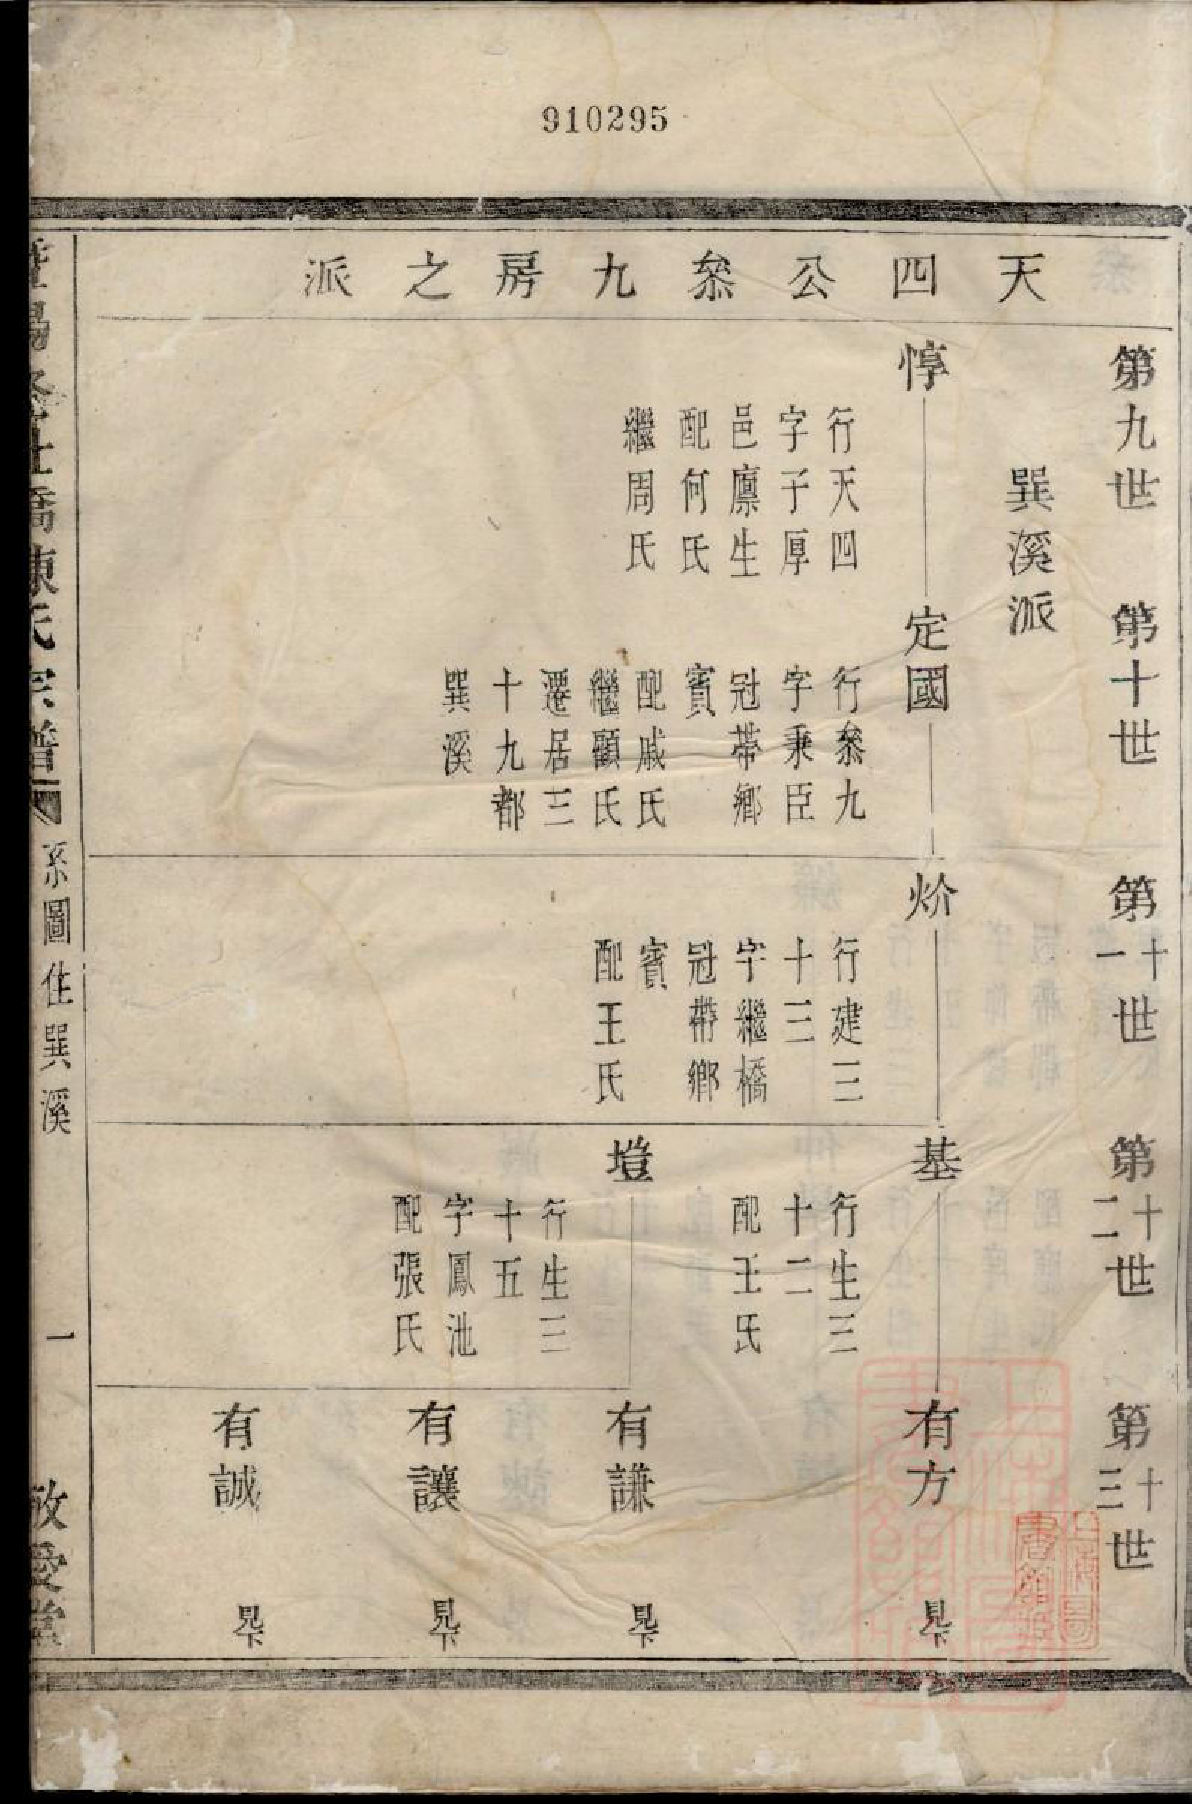 910295
天四公叅九房之派
第九世
第十世
第十一世
第十二世
第十三世
巽溪派
惇
行天四
字子厚
邑廪生
配何氏
繼周氏
定國
行叅九
字秉臣
冠帶鄉
賓
配戚氏
繼顧氏
遷居三
十九都
巽溪
炌
行建三
十三
字繼橋
冠帶鄉
賓
配王氏
基
行生三
十二
配王氏
塏
行生三
十五
字鳳池
配張氏
有方 見下
有謙 見下
有讓 見下
有誠 見下
橋陳氏宗譜 系圖住巽溪 一 敬愛堂